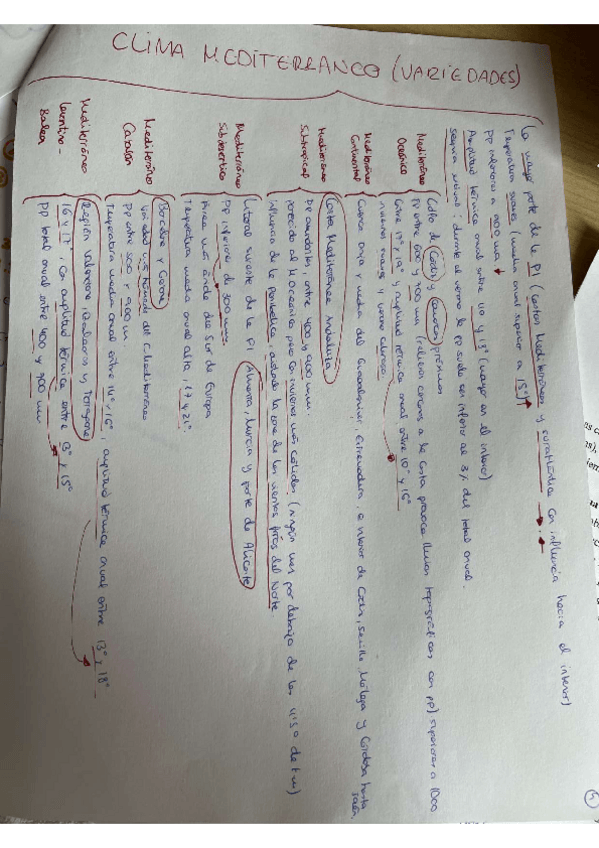 CLIMA MEDITERRANEO (VARIEDADES)
La mayor parte de la PI (costas Mediterráneas y suratlántica con influencia hacia el interior)
Temperatura suave (media anual superior a 15°)
PP inferiores a 800 mm
Amplitud térmica anual entre y 13° (mayor en el interior)
sequía estival: durante el verano la pp suele ser inferior al 3% del total anual.
Mediterráneo Oceánico
Costa de Cádiz y próximos
pp entre 600 y 700 mm (relieves cercanos a la costa provoca lluvias topográficas con pp superiores a 1000
Entre 17° y 19° y amplitud térmica anual entre 10° y 16°
inviernos suaves y verano caluroso
Mediterráneo Continental
Cuenca baja y media del Guadalquivir, Extremadura, e interior de Cádiz, Sevilla, Málaga y Córdoba hasta Jaén.
Mediterráneo Subtropical
Costa Mediterránea Andaluza
PP entre 400 y 900 mm.
parecido al M Oceánico pero con inviernos más cálidos (ningún mes por debajo de los de tm)
influencia de la Penibética aislada la zona de los vientos fríos del Norte
Mediterráneo Subdesértico
Litoral sureste de la PI Almería, Murcia y parte de Alicante
PP inferiores de 300 mm
Área más árida del Sur de Europa
Temperatura media anual alta, 17 y 21°
Mediterráneo Catalán
Barcelona y Gerona
Variedad más húmeda del C. Mediterráneo
PP entre 500 y 900 m
Temperatura media anual entre 14° y 16°, amplitud térmica anual entre 13° y 18°
Mediterráneo levantino - Balear
Región Valenciana, Baleares y Tarragona
16 y 17°, con amplitud térmica entre 13° y 15°
PP total anual entre 400 y 700 mm